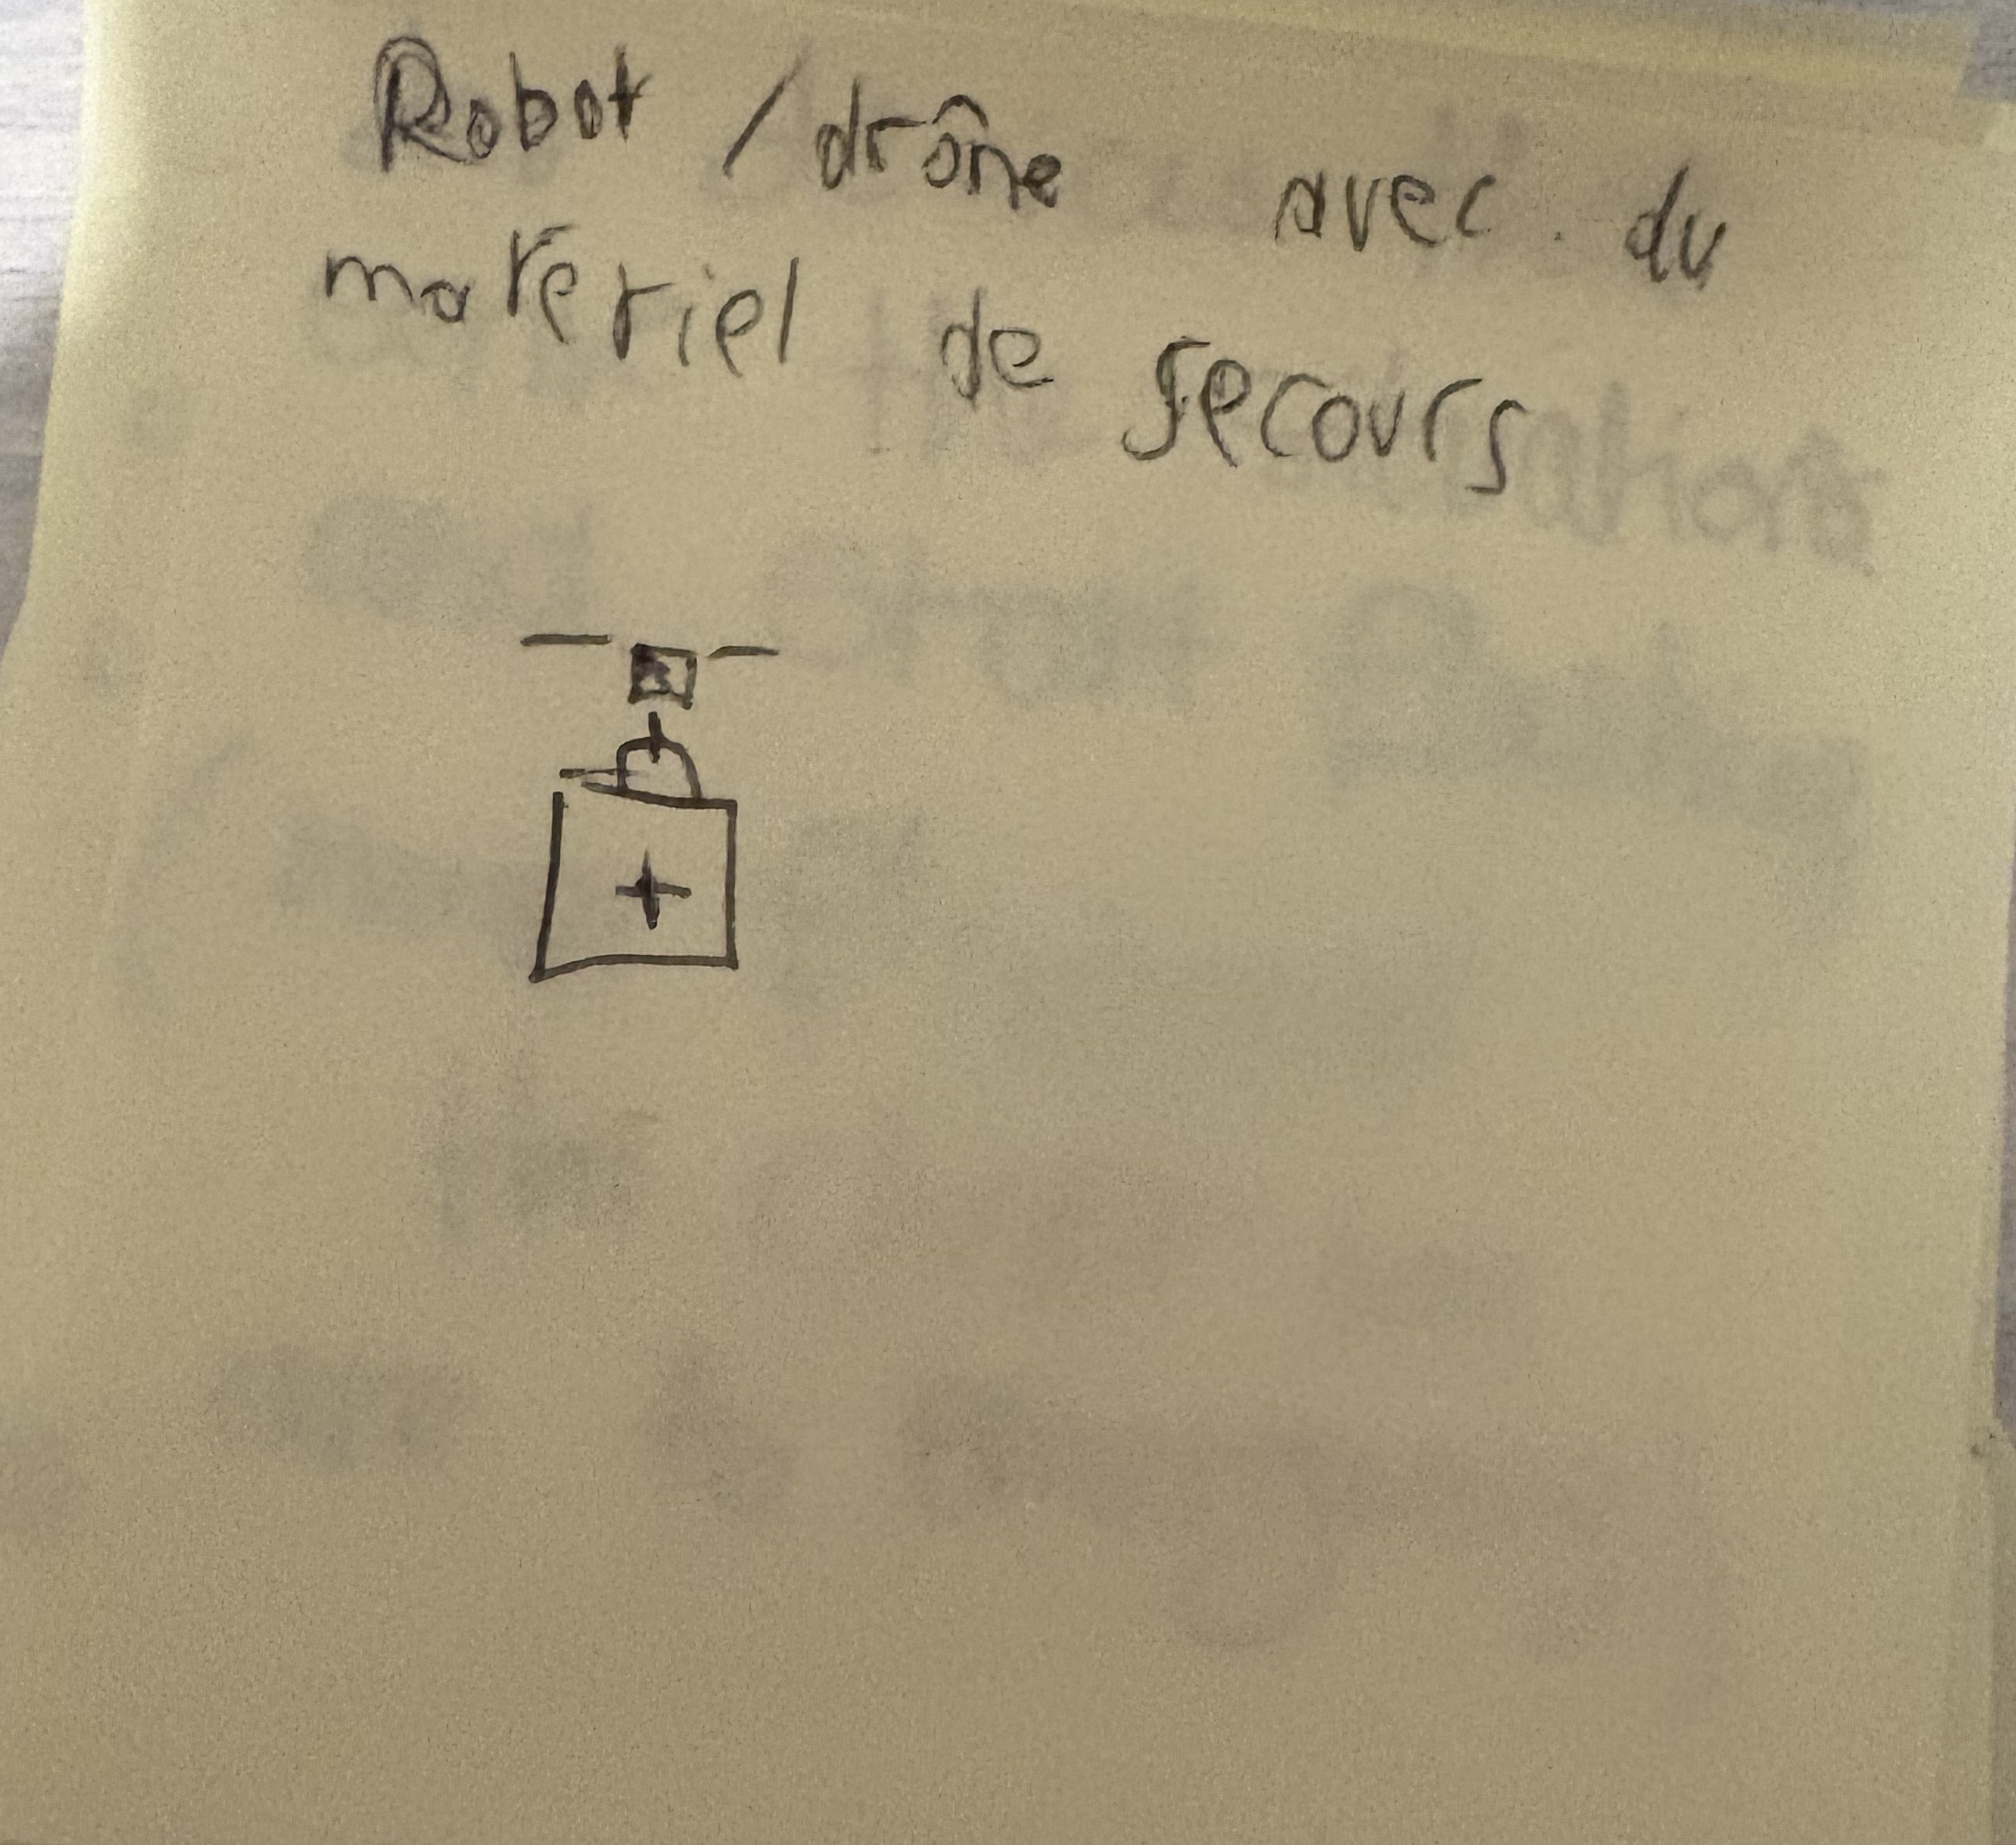 Robot / drône avec du
materiel de secours